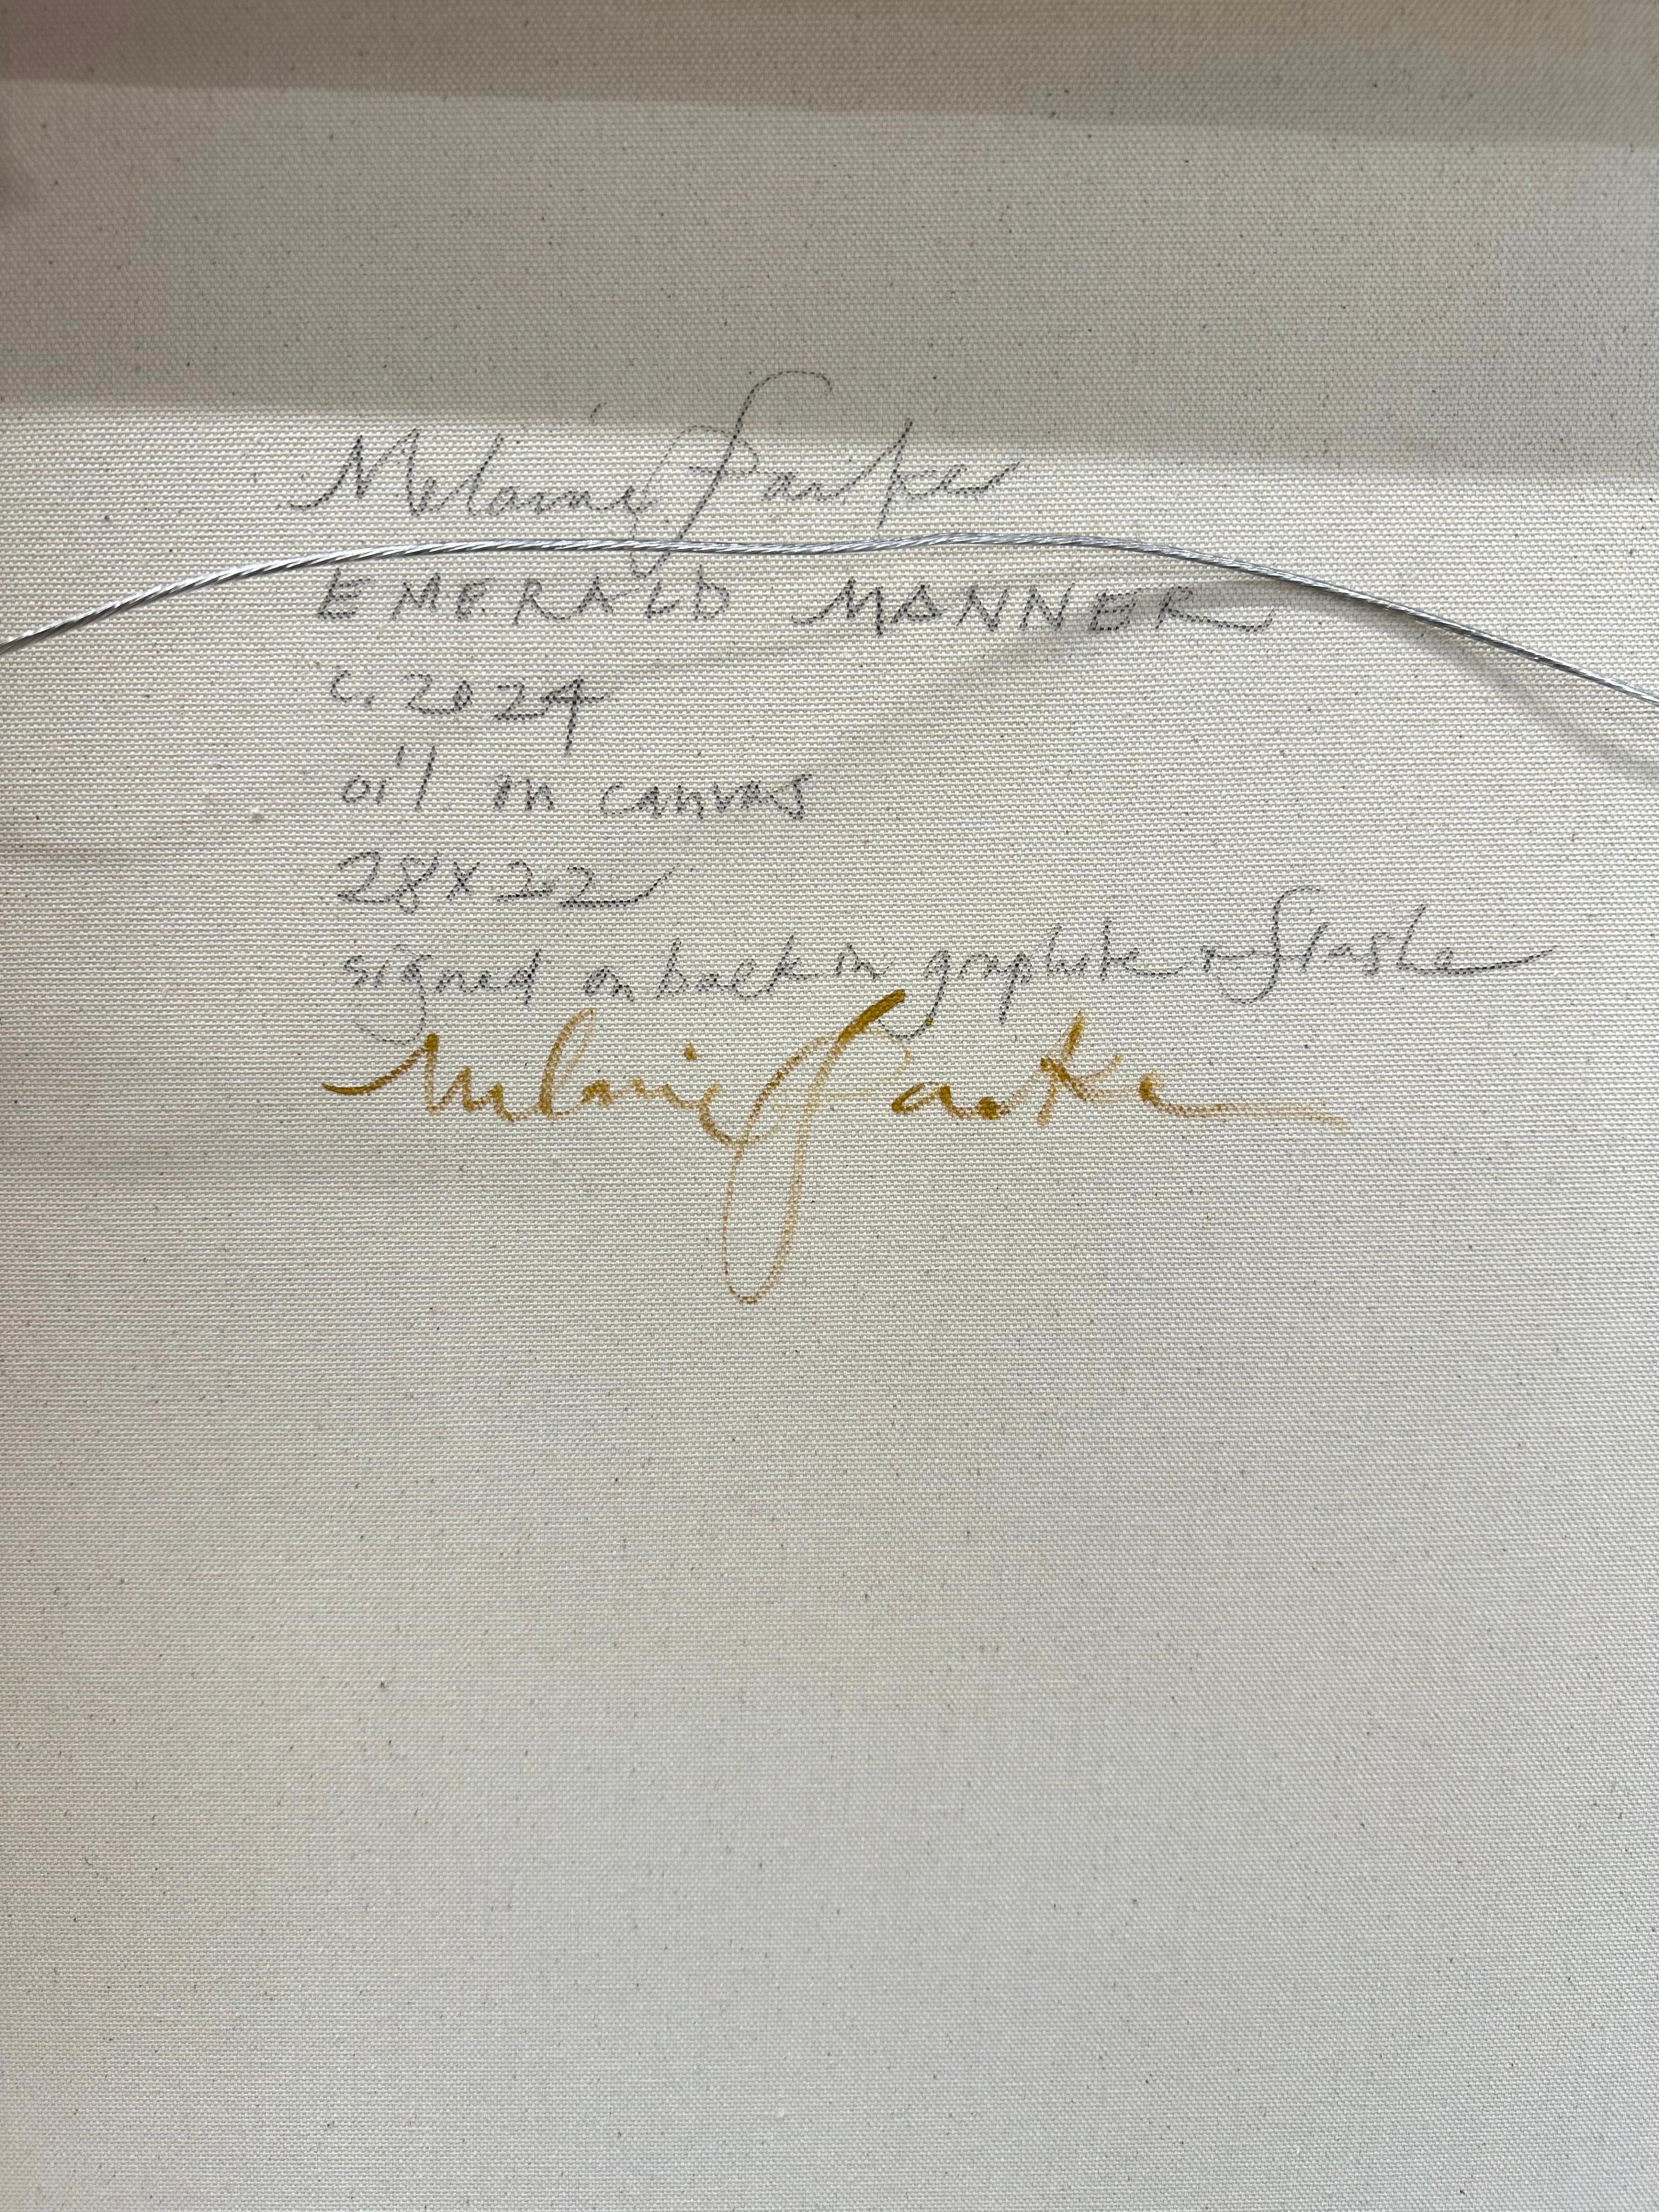 Melanie Parke
EMERALD MANNER
c. 2024
oil on canvas
28x22
signed on back in graphite + flashe
Melanie Parke